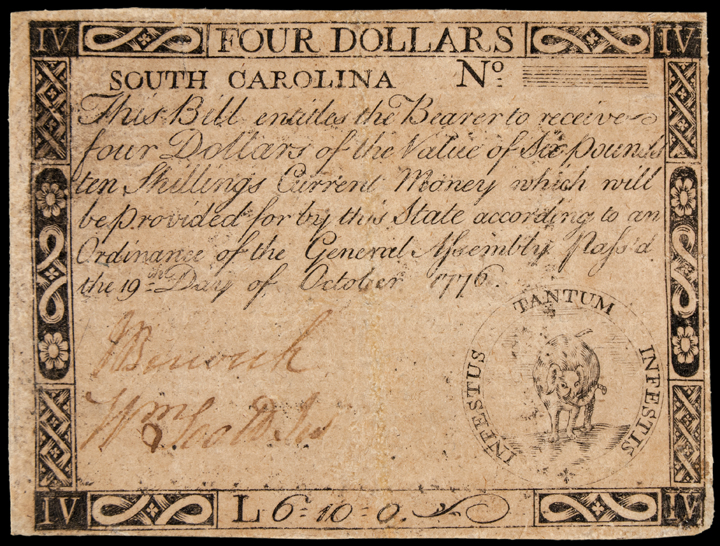 IV FOUR DOLLARS IV
SOUTH CAROLINA Nº
This Bill entitles the Bearer to receive
four Dollars of the Value of Six pounds
ten Shillings Current Money which will
be provided for by this State according to an
Ordinance of the General Assembly Pass'd
the 19th Day of October 1776.
INFESTUS TANTUM INFESTIS
Wm Scott Jr
IV L 6=10=0. IV